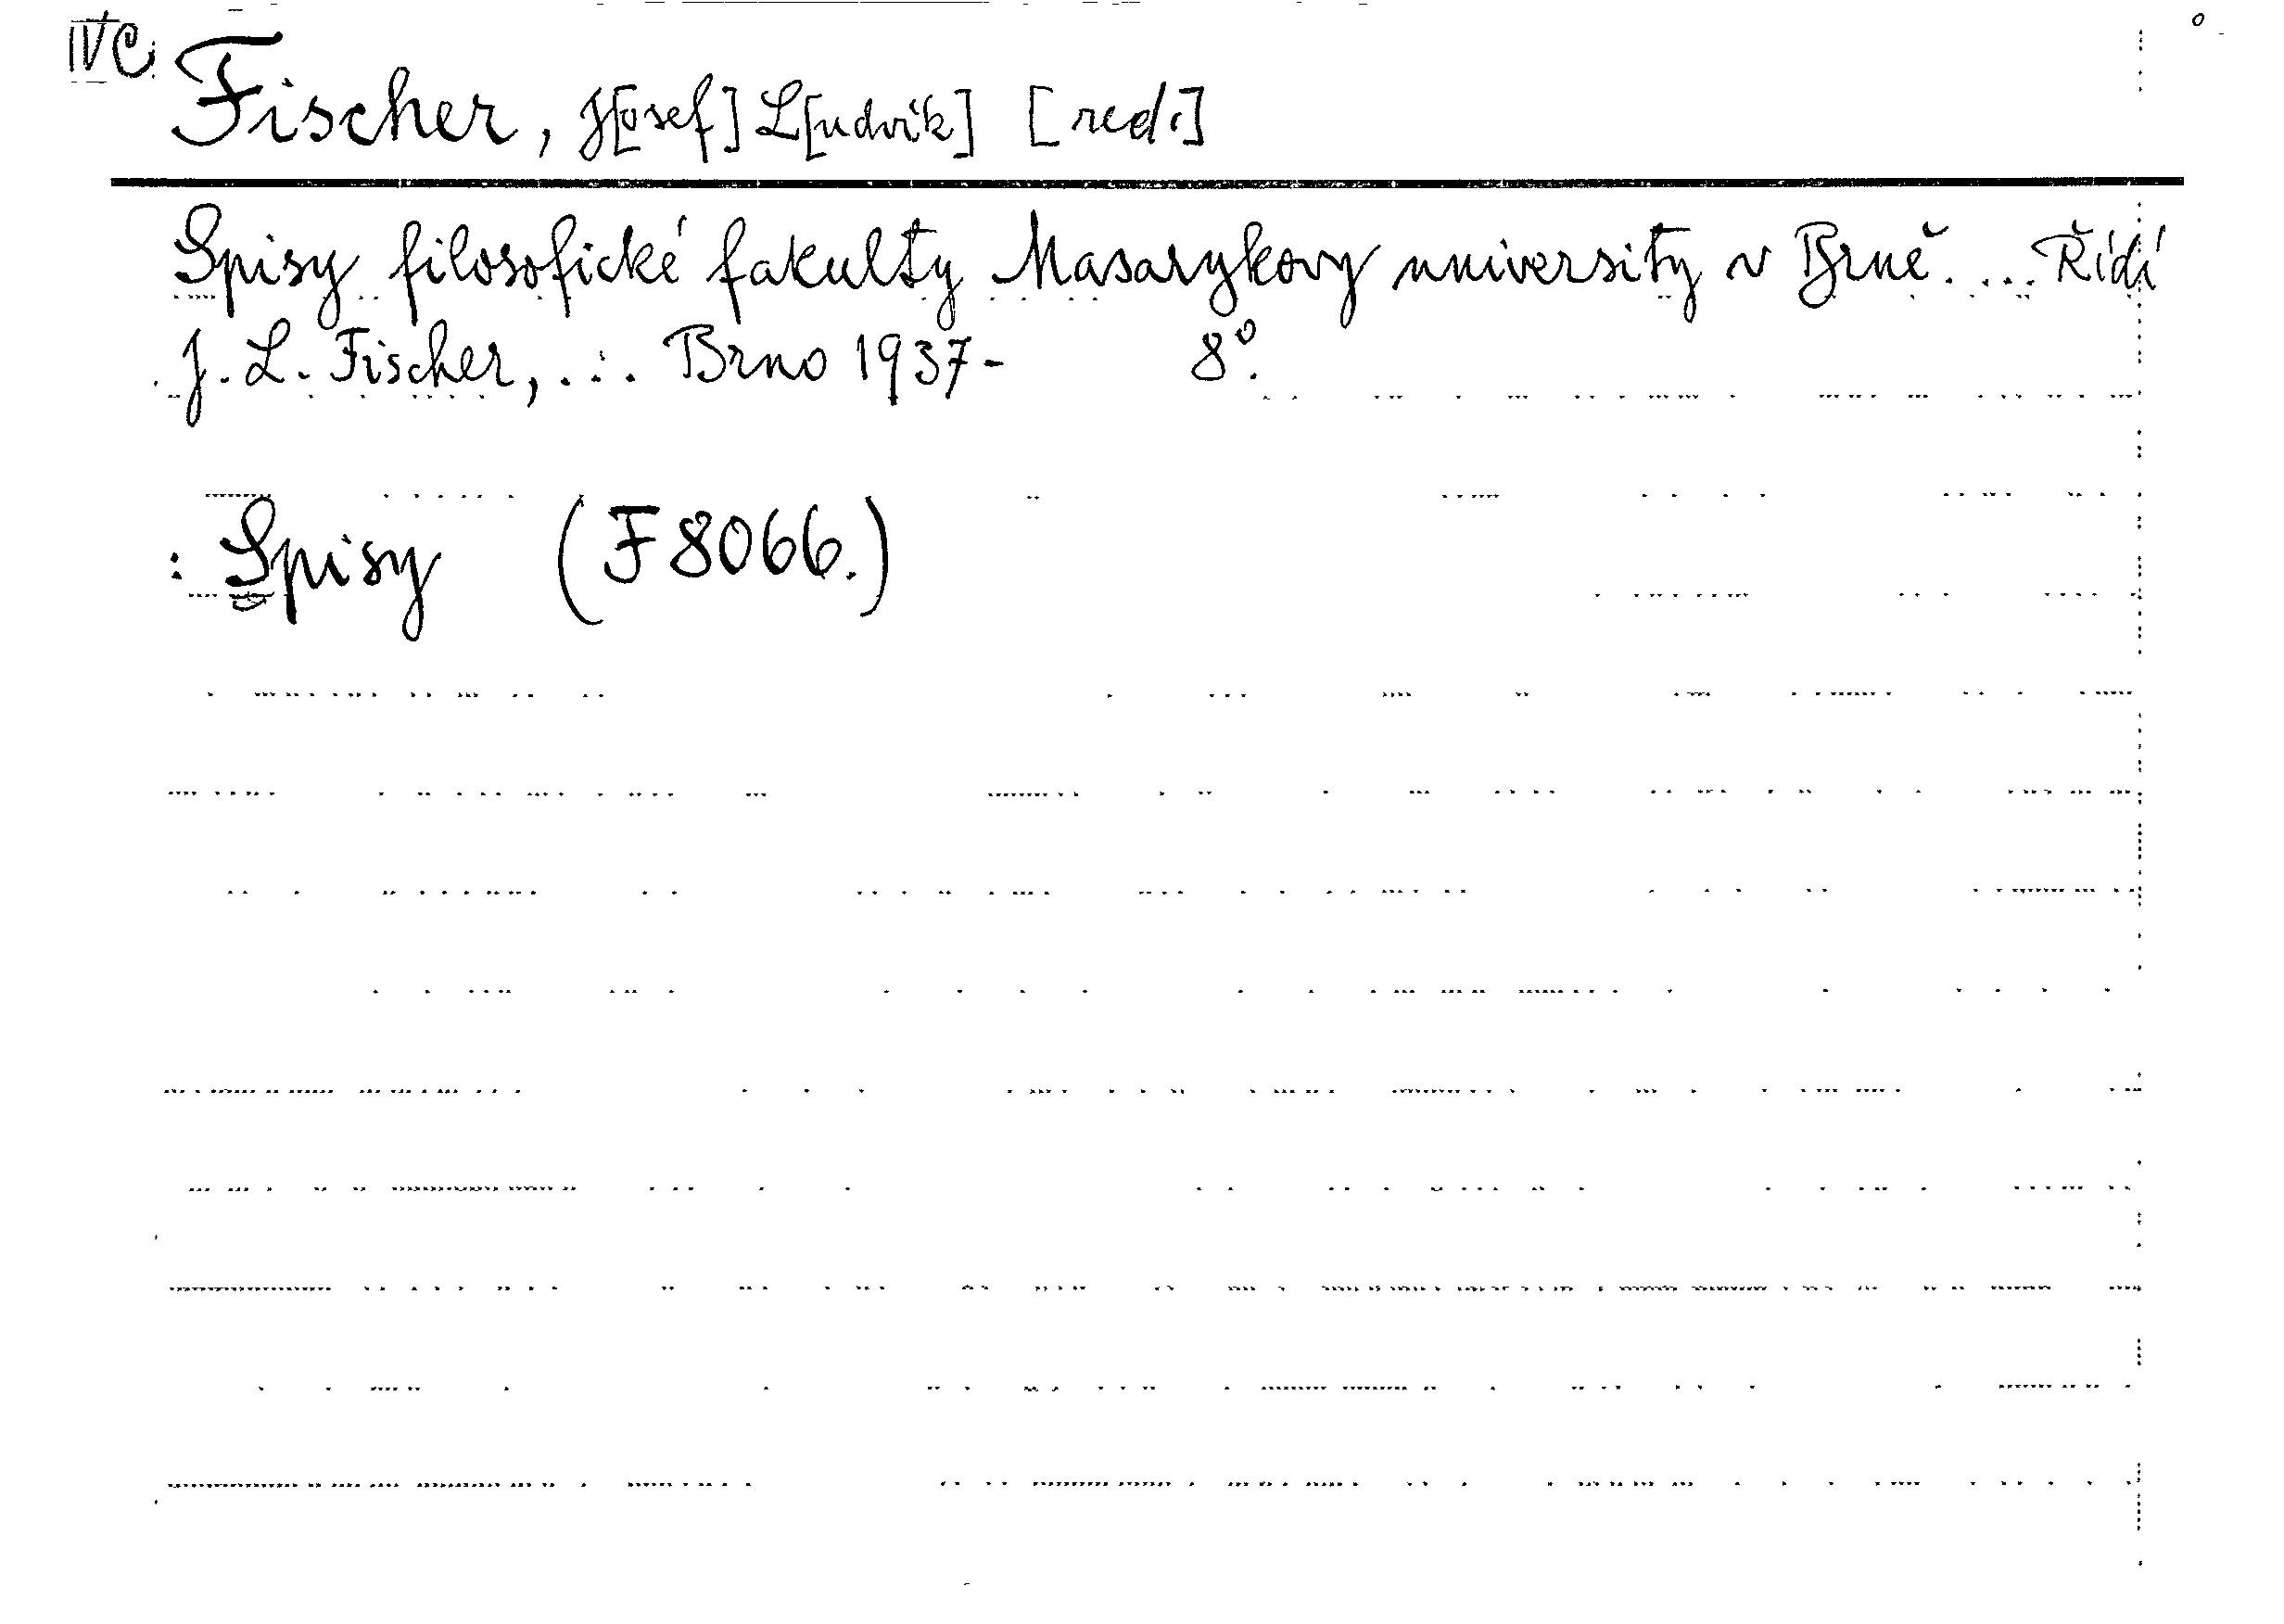 IVC.
Fischer, J[osef] L[udvík] [red.]
Spisy filosofické fakulty Masarykovy university v Brně. ... Řídí
J. L. Fischer, ... Brno 1937- 8°.
: Spisy (F 8066.)